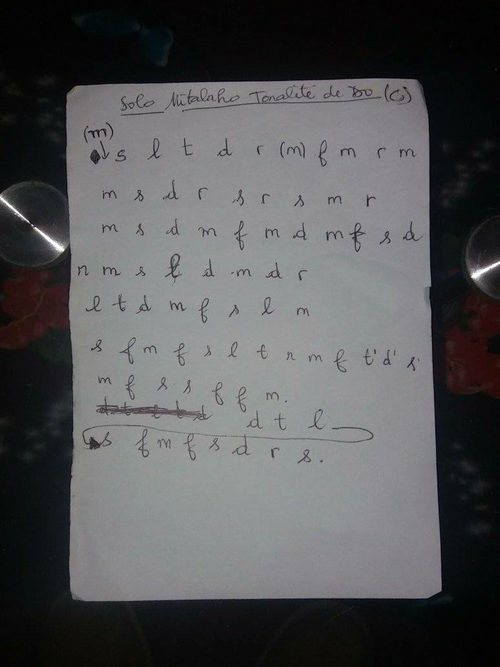 Solo Mitalaho Tonalité de DO (C)
(m)
s l t d r (m) f m r m
m s d r s r s m r
m s d m f m d m f s d
r m s l d m d r
l t d m f s l m
s f m f s l t r m f t' d' s'
m f s s f f m.
d t l
s f m f s d r s.